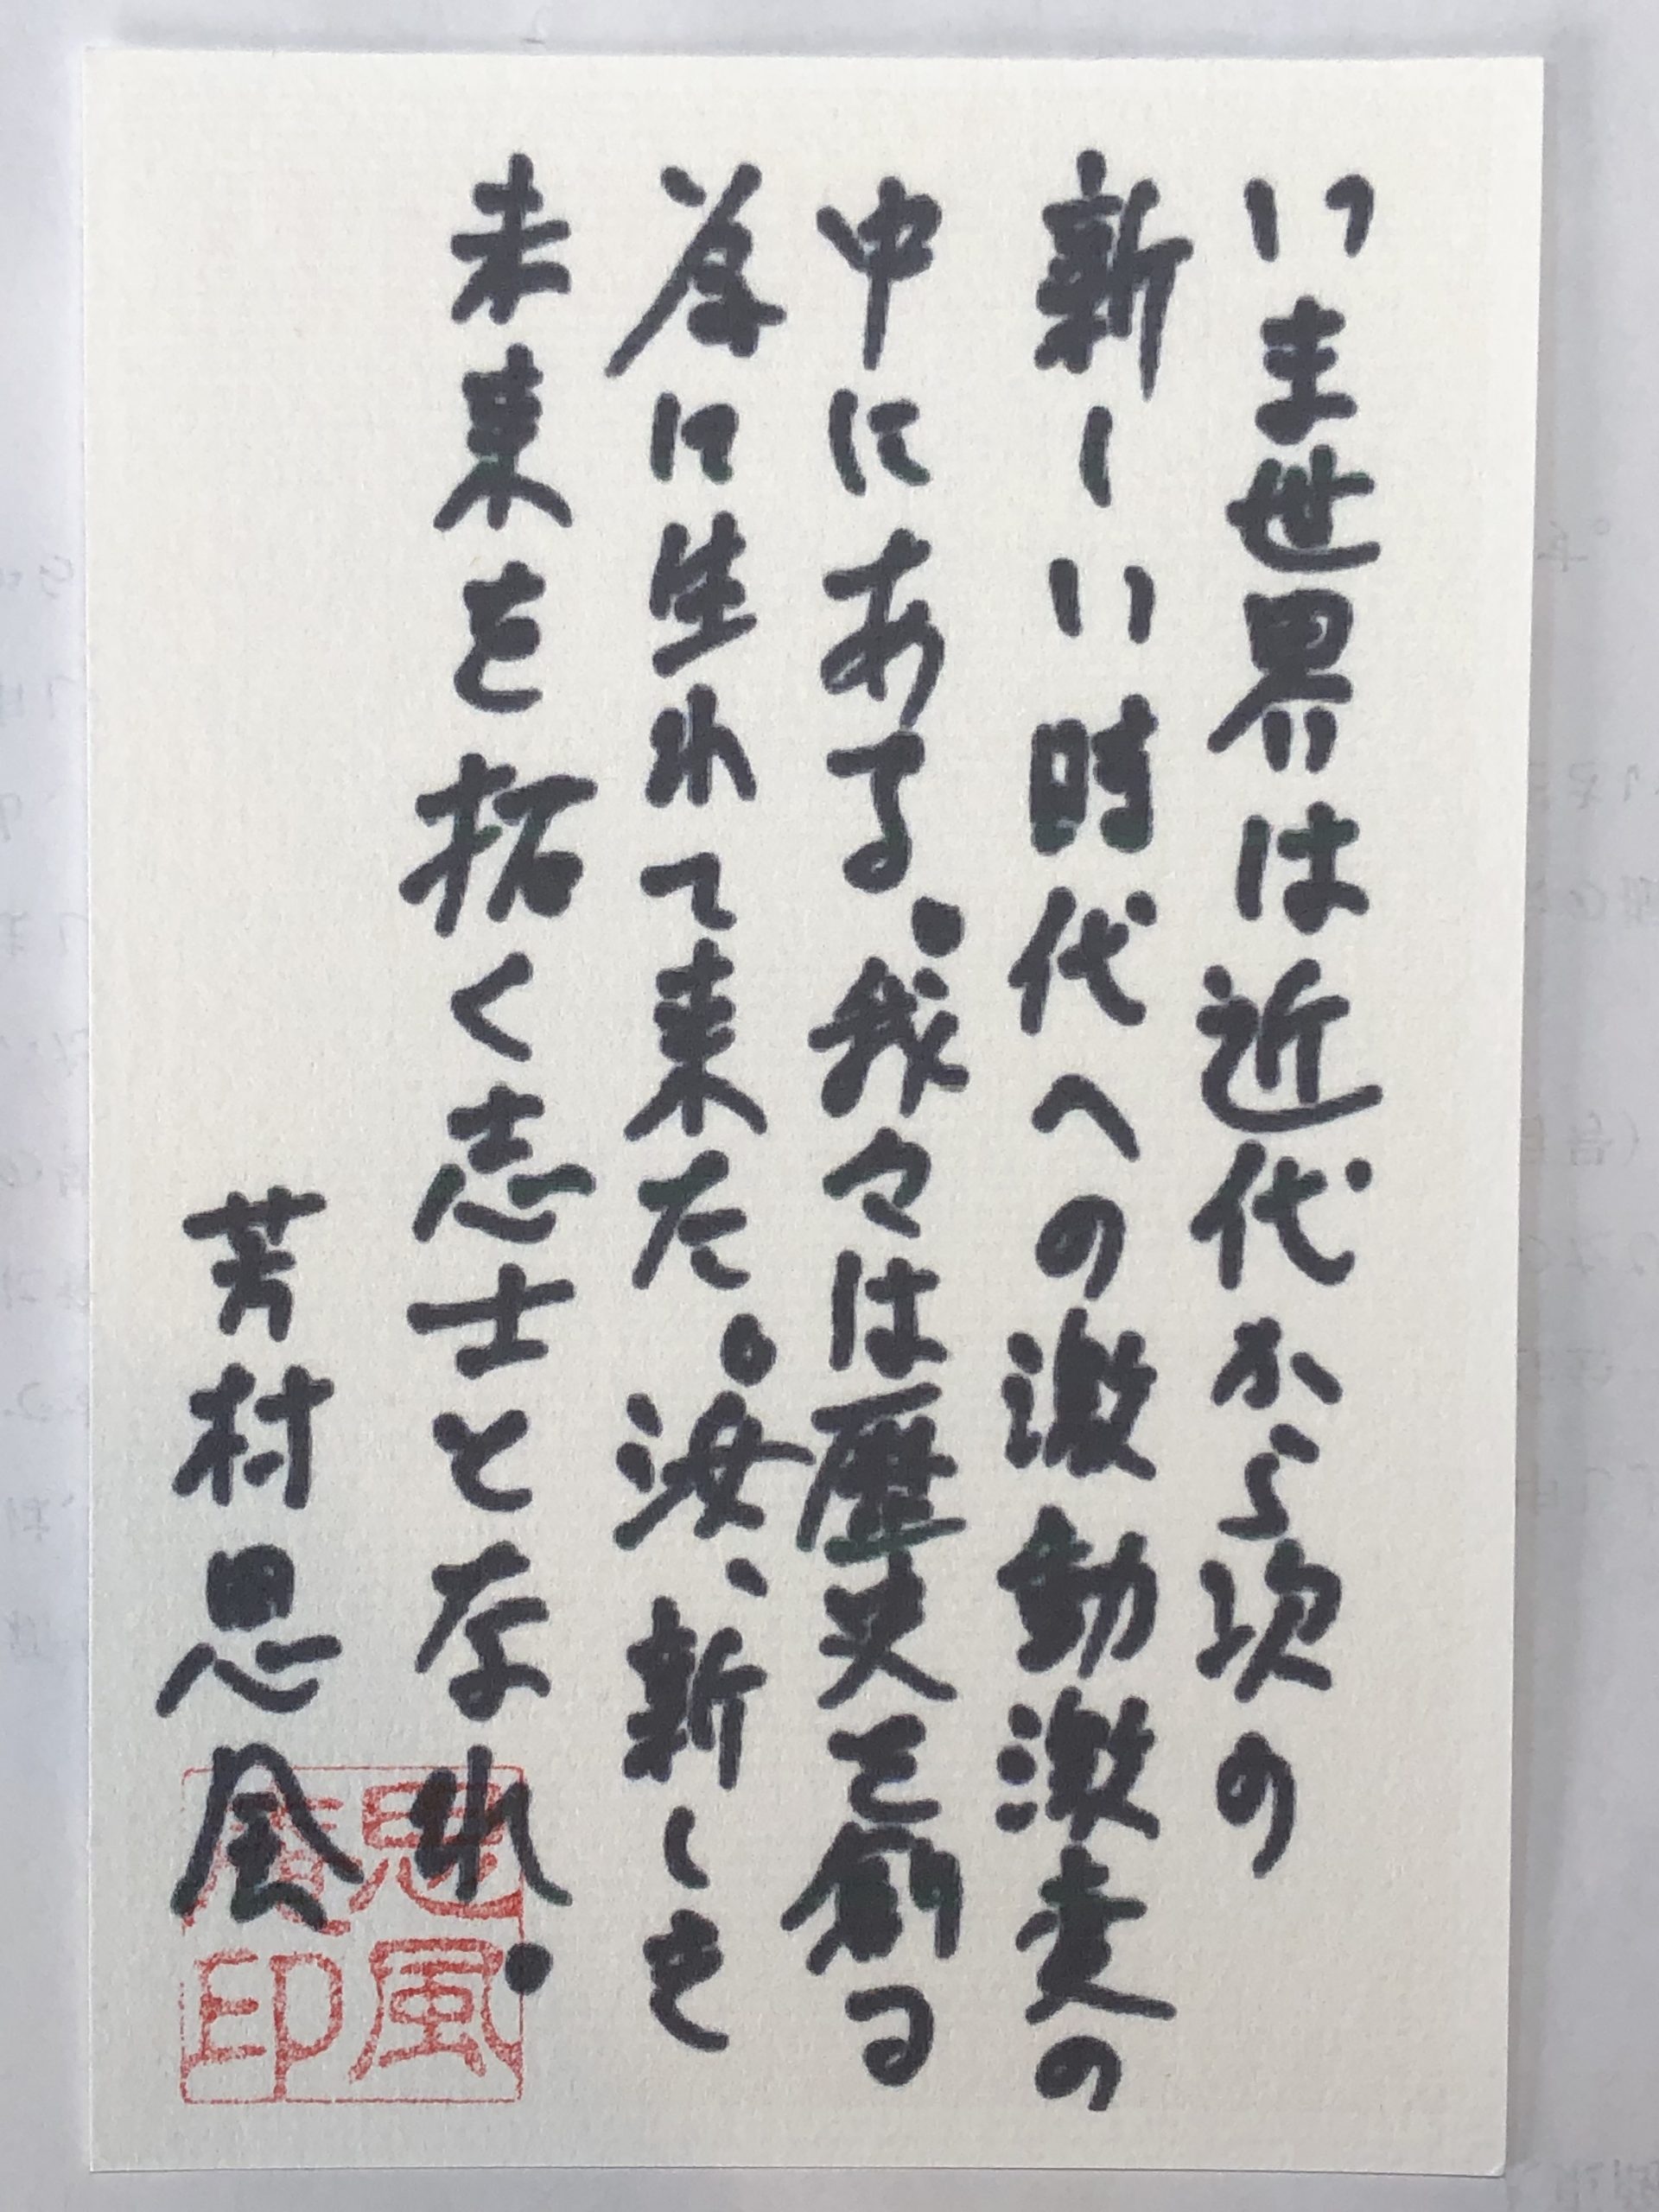 いま世界は近代から次の
新しい時代への激動激変の
中にある。我々は歴史を創る
為に生れて来た。汝、新しき
未来を拓く志士となれ。
芳村思風
思風
印